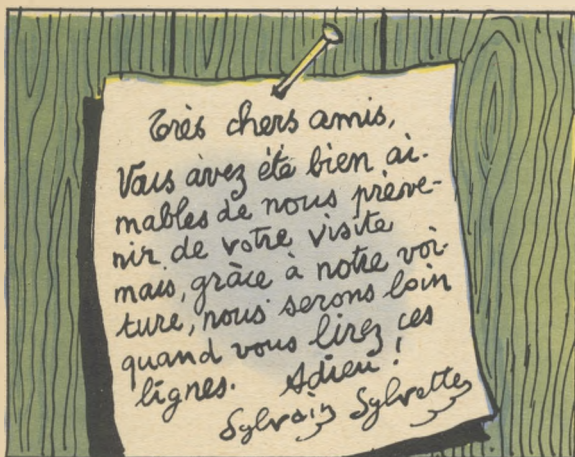 Très chers amis,
Vous avez été bien ai-
mables de nous préve-
nir de votre visite
mais, grâce à notre voi-
ture, nous serons loin
quand vous lirez ces
lignes. Adieu !
Sylvain Sylvette